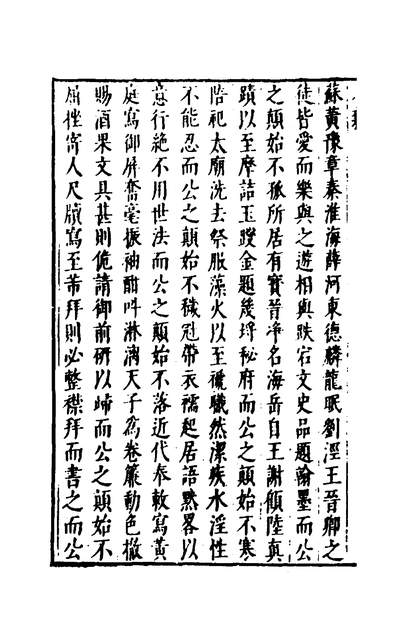 蘇黃豫章秦淮海薛河東德麟龍眠劉涇王晉卿之
徒皆愛而樂與之遊相與跌宕文史品題翰墨而公
之顛始不孤所居有寶晉淨名海岳自王謝顧陸真
蹟以至摩詰玉躞金題幾埒秘府而公之顛始不寒
陪祀太廟洗去祭服藻火以至褫職然潔疾水淫性
不能忍而公之顛始不穢冠帶衣襦起居語默畧以
意行絶不用世法而公之顛始不落近代奉敕寫黃
庭寫御屏奮毫振袖酣呌淋漓天子為卷簾動色徹
賜酒果文具甚則佹請御前硏以歸而公之顛始不
屈挫寄人尺牘寫至芾拜則必整襟拜而書之而公